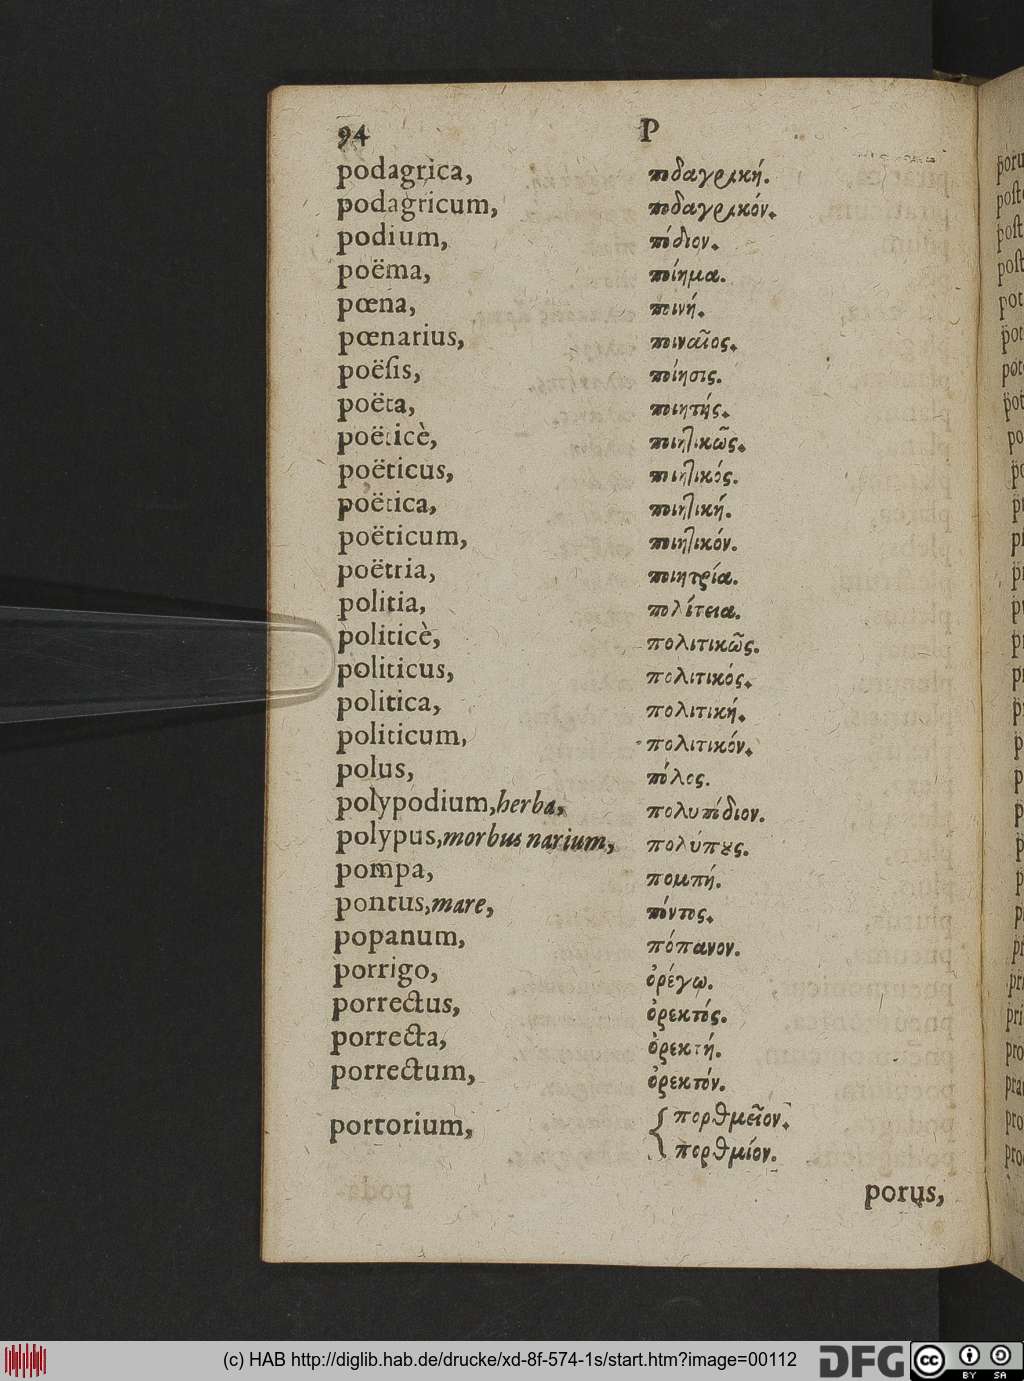 94 P
podagrica, ποδαγρική.
podagricum, ποδαγρικόν.
podium, πόδιον.
poëma, ποίημα.
pœna, ποινή.
pœnarius, ποιναῖος.
poëſis, ποίησις.
poëta, ποιητής.
poëticè, ποιητικῶς.
poëticus, ποιητικός.
poëtica, ποιητική.
poëticum, ποιητικόν.
poëtria, ποιητρία.
politia, πολίτεια.
politicè, πολιτικῶς.
politicus, πολιτικός.
politica, πολιτική.
politicum, πολιτικόν.
polus, πόλος.
polypodium, herba, πολυπόδιον.
polypus, morbus narium, πολύπȣς.
pompa, πομπή.
pontus, mare, πόντος.
popanum, πόπανον.
porrigo, ὀρέγω.
porrectus, ὀρεκτός.
porrecta, ὀρεκτή.
porrectum, ὀρεκτόν.
portorium, { πορθμεῖον.
πορθμίον.
porus,
(c) HAB http://diglib.hab.de/drucke/xd-8f-574-1s/start.htm?image=00112 DFG cc BY SA